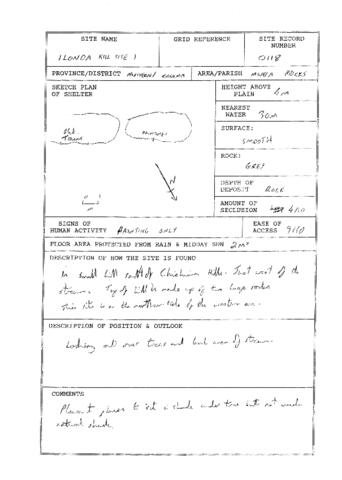 SITE NAME
GRID REFERENCE
SITE RECORD
NUMBER
ILONDA KILL SITE 1
0118
PROVINCE/DISTRICT
AREA/PARISH
ROCKS
SKETCH PLAN
OF SHELTER
HEIGHT ABOVE
PLAIN 6m
NEAREST
WATER 30m
SURFACE:
SMOOTH
ROCK:
GREY
DEPTH OF
DEPOSIT ROCK
AMOUNT OF
SECLUSION 4/10
N
m
SIGNS OF
HUMAN ACTIVITY PAINTING ONLY
EASE OF
ACCESS 9/10
FLOOR AREA PROTECTED FROM RAIN & MIDDAY SUN 2m²
DESCRIPTION OF HOW THE SITE IS FOUND
small hill of Hills. Just west of the
stream. Top of hill is made up of two large rocks
This site is on the northern side of the western one.
DESCRIPTION OF POSITION & OUTLOOK
Looking out over trees and area of stream.
COMMENTS
Pleasant place to sit in shade under tree but not much
natural shade.